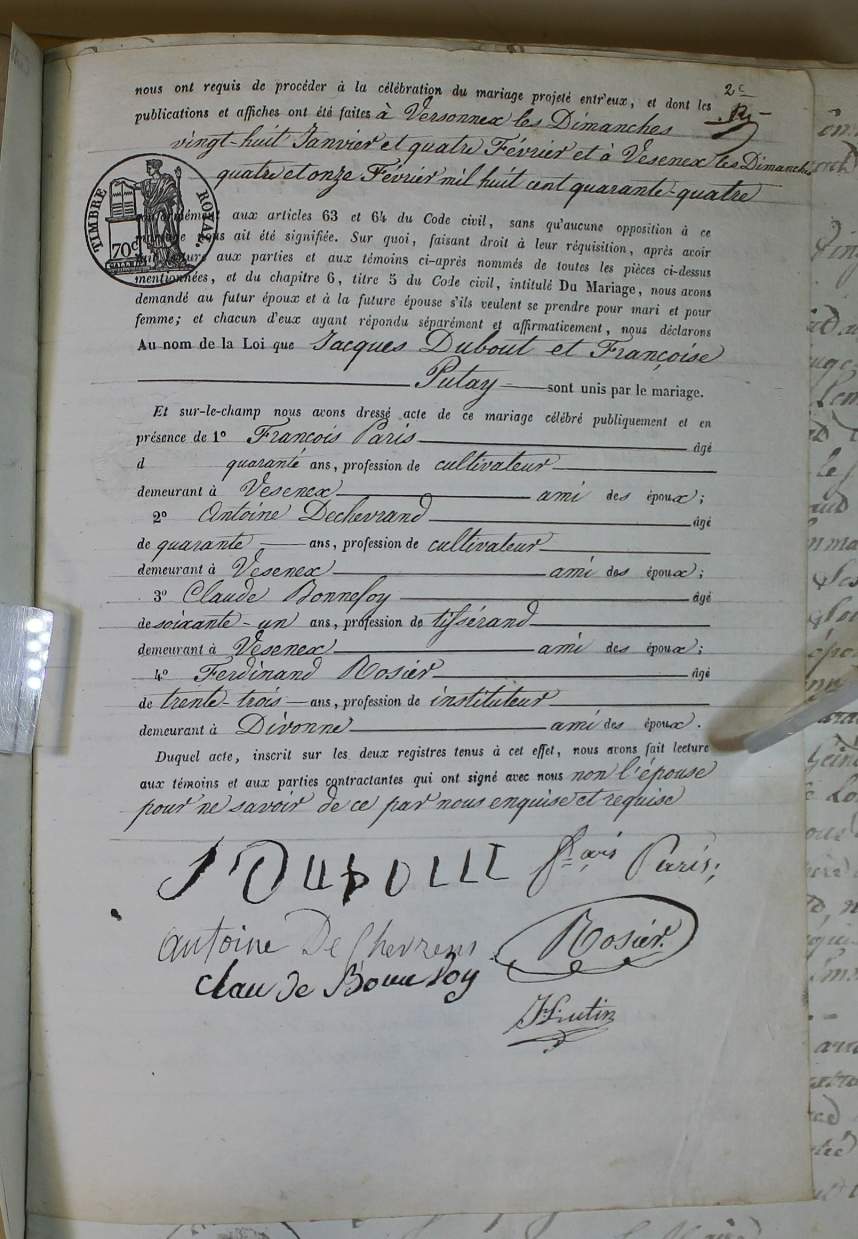 nous ont requis de procéder à la célébration du mariage projeté entr'eux, et dont les
2e
publications et affiches ont été faites à Versonnex les Dimanches
vingt-huit Janvier et quatre Février et à Vesenex les Dimanches
quatre et onze Février mil huit cent quarante-quatre
TIMBRE ROYAL.
70c
conformément aux articles 63 et 64 du Code civil, sans qu'aucune opposition à ce
mariage nous ait été signifiée. Sur quoi, faisant droit à leur réquisition, après avoir
fait lecture aux parties et aux témoins ci-après nommés de toutes les pièces ci-dessus
mentionnées, et du chapitre 6, titre 5 du Code civil, intitulé Du Mariage, nous avons
demandé au futur époux et à la future épouse s'ils veulent se prendre pour mari et pour
femme; et chacun d'eux ayant répondu séparément et affirmaticement, nous déclarons
Au nom de la Loi que Jacques Dubout et Françoise
Putay sont unis par le mariage.
Et sur-le-champ nous avons dressé acte de ce mariage célébré publiquement et en
présence de 1º François Paris âgé
d quarante ans, profession de cultivateur
demeurant à Vesenex ami des époux;
2º Antoine Dechevrand âgé
de quarante ans, profession de cultivateur
demeurant à Vesenex ami des époux;
3º Claude Bonnefoy âgé
de soixante-un ans, profession de tissérand
demeurant à Vesenex ami des époux;
4º Ferdinand Rosier âgé
de trente-trois ans, profession de instituteur
demeurant à Divonne ami des époux.
Duquel acte, inscrit sur les deux registres tenus à cet effet, nous avons fait lecture
aux témoins et aux parties contractantes qui ont signé avec nous non l'épouse
pour ne savoir de ce par nous enquise et requise
J Dubout fçois Paris;
antoine DeChevrens Rosier.
clau de Bonnefoy